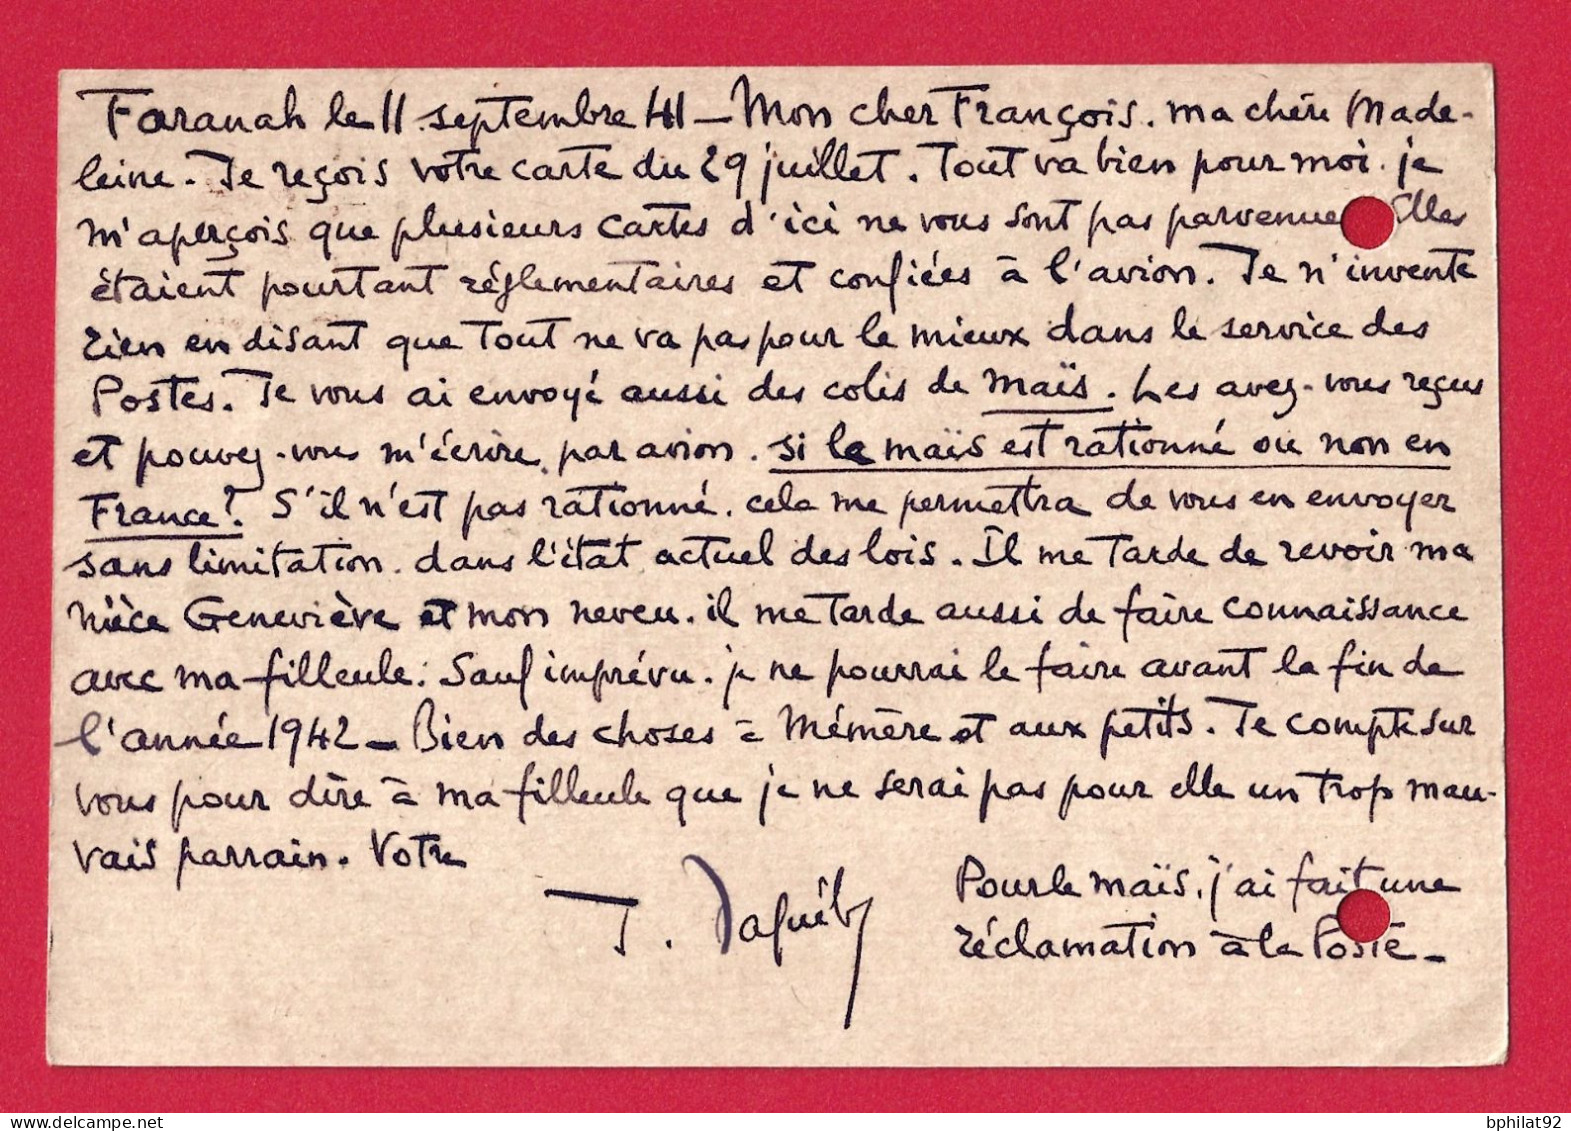 Faranah le 11 septembre 41 – Mon cher François. ma chère Made-
leine. Je reçois votre carte du 29 juillet. Tout va bien pour moi. je
m'aperçois que plusieurs cartes d'ici ne vous sont pas parvenue Elles
étaient pourtant réglementaires et confiées à l'avion. Je n'invente
rien en disant que tout ne va pas pour le mieux dans le service des
Postes. Je vous ai envoyé aussi des colis de maïs. Les avez-vous reçus
et pouvez-vous m'écrire, par avion. si le maïs est rationné ou non en
France? S'il n'est pas rationné. cela me permettra de vous en envoyer
sans limitation. dans l'état actuel des lois. Il me tarde de revoir ma
nièce Geneviève et mon neveu. il me tarde aussi de faire connaissance
avec ma filleule. Sauf imprévu. je ne pourrai le faire avant la fin de
l'année 1942 – Bien des choses à Mémère et aux petits. Je compte sur
vous pour dire à ma filleule que je ne serai pas pour elle un trop mau-
vais parrain. Votre
J.
Pour le maïs. j'ai fait une
réclamation à la Poste –
bphilat92